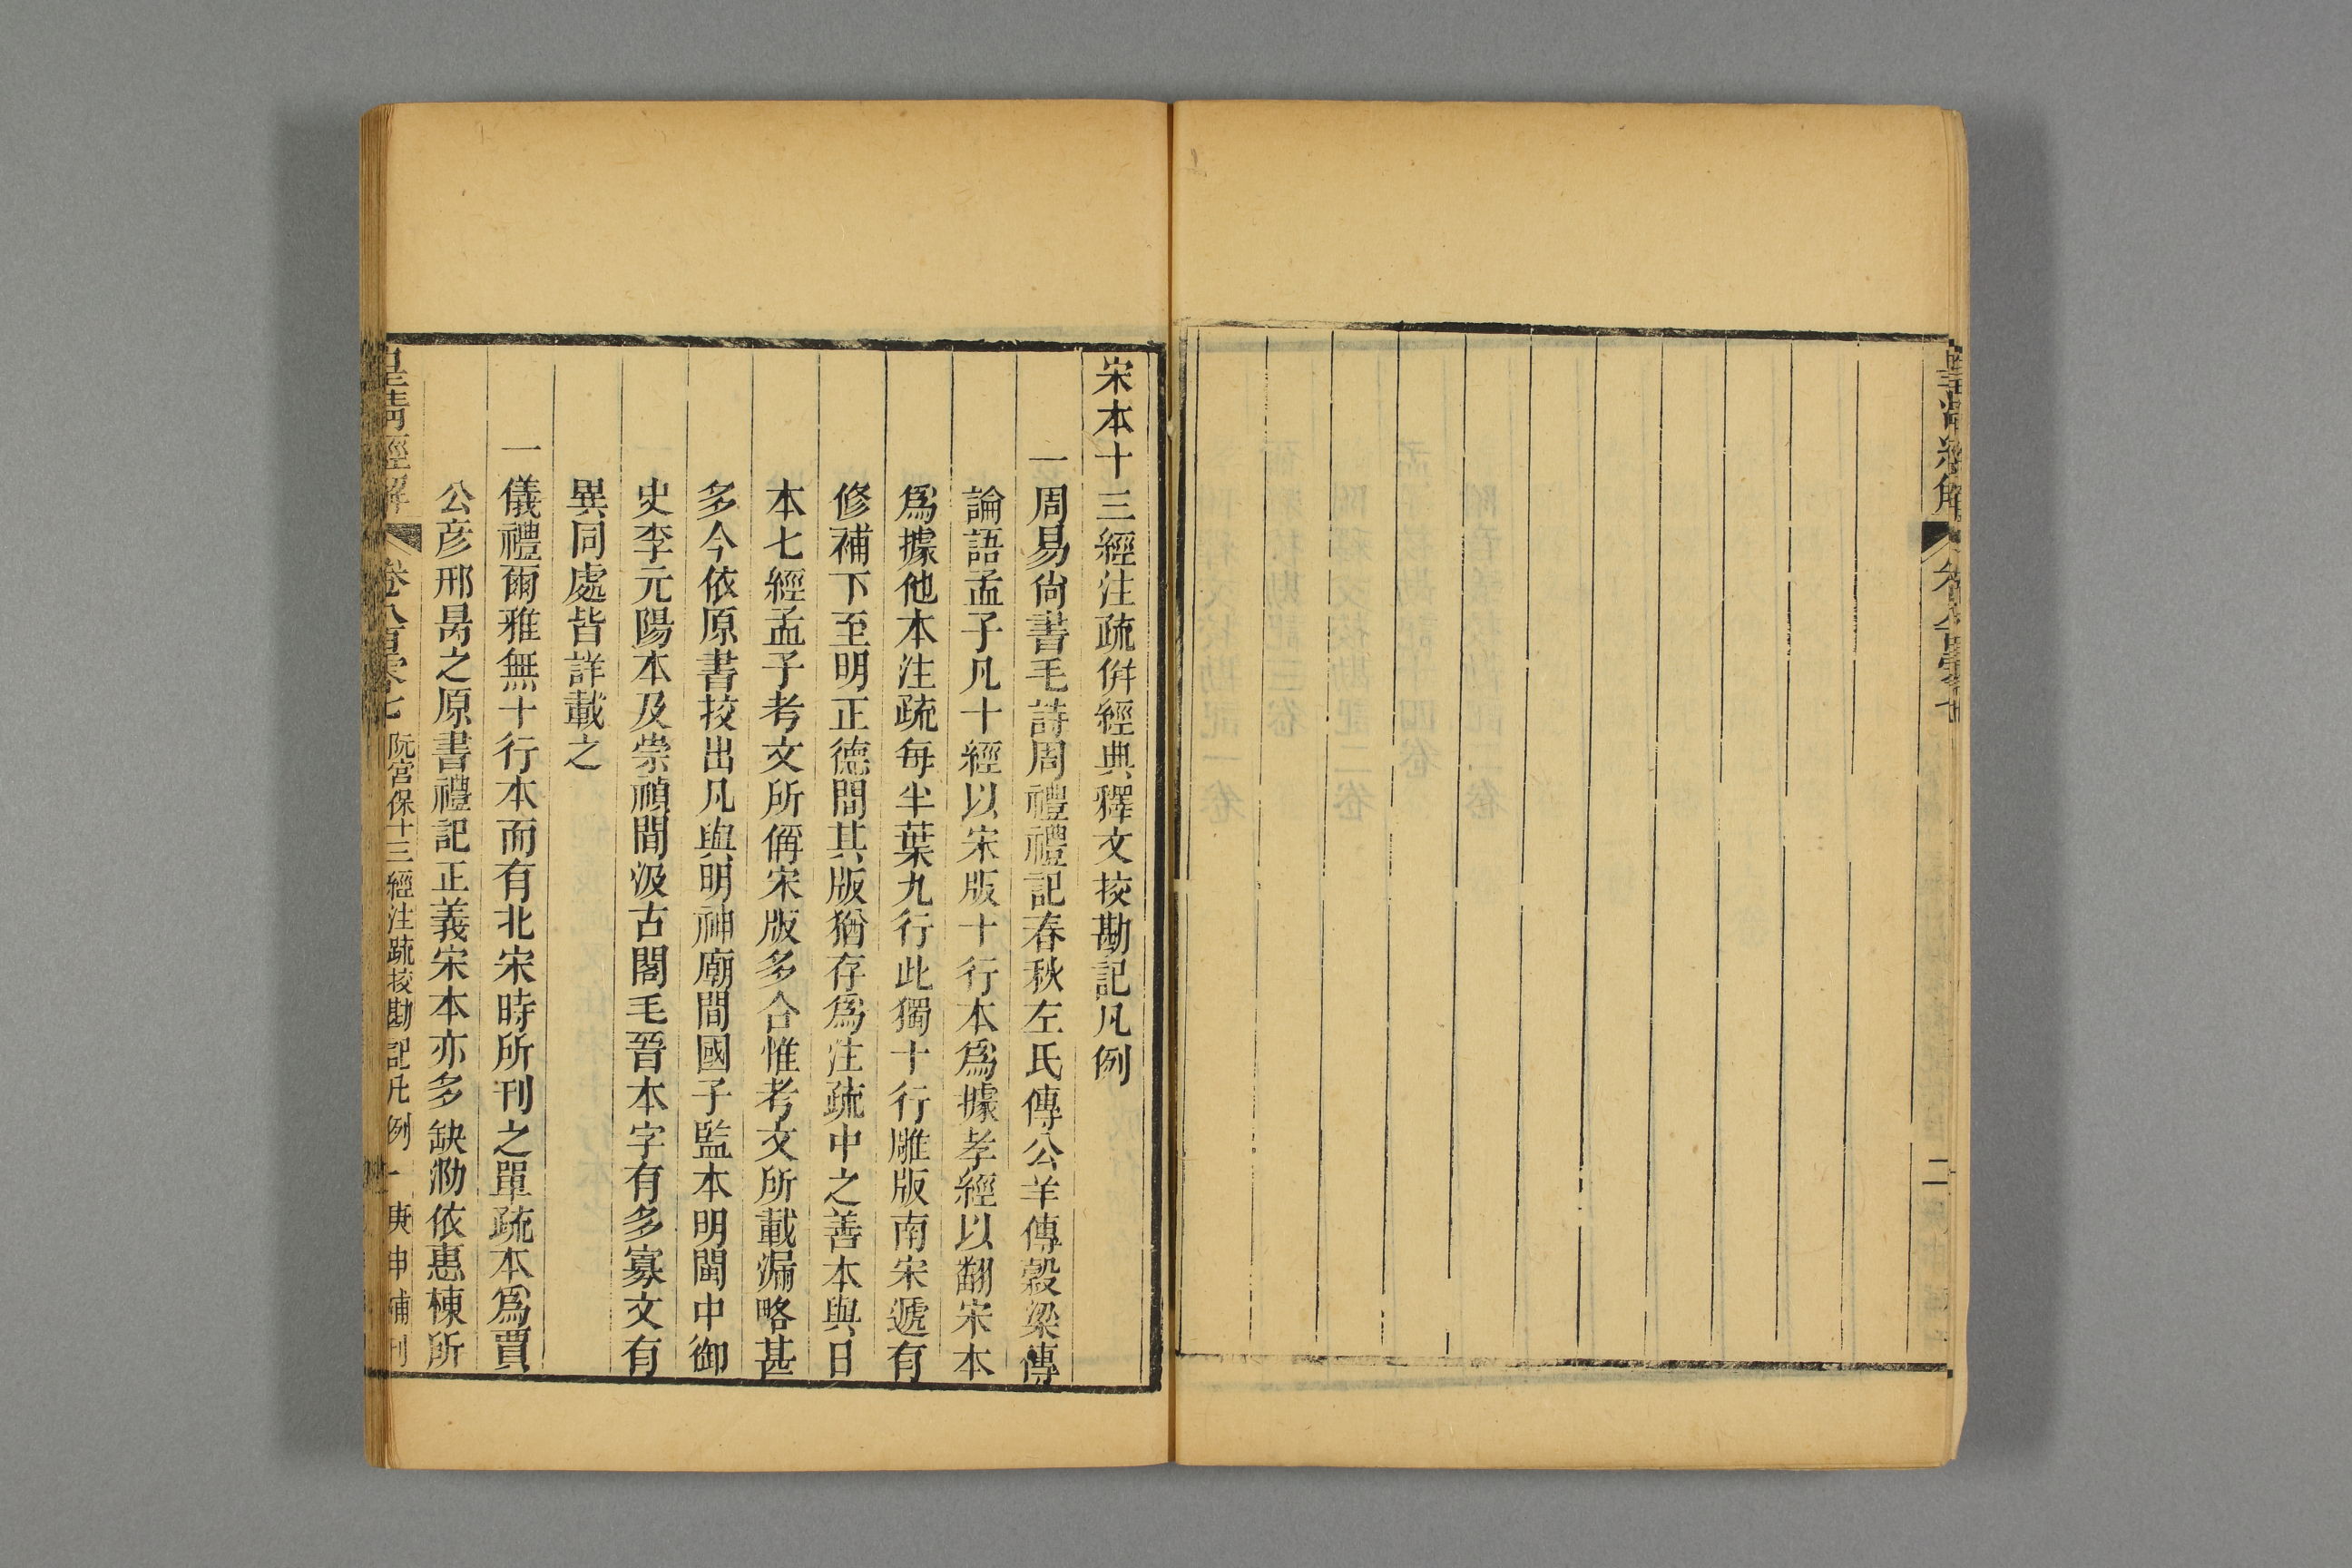 皇清經解 卷八百零七
二
宋本十三經注疏併經典釋文挍勘記凡例
一周易尙書毛詩周禮禮記春秋左氏傳公羊傳穀梁傳
論語孟子凡十經以宋版十行本爲據孝經以翻宋本
爲據他本注疏每半葉九行此獨十行雕版南宋遞有
修補下至明正德間其版猶存爲注疏中之善本與日
本七經孟子考文所偁宋版多合惟考文所載漏略甚
多今依原書挍出凡與明神廟間國子監本明閩中御
史李元陽本及崇禎間汲古閣毛晉本字有多寡文有
異同處皆詳載之
一儀禮爾雅無十行本而有北宋時所刊之單疏本爲賈
公彦邢昺之原書禮記正義宋本亦多缺泐依惠棟所
皇清經解 卷八百零七 阮宮保十三經注疏挍勘記凡例 一 庚申補刊